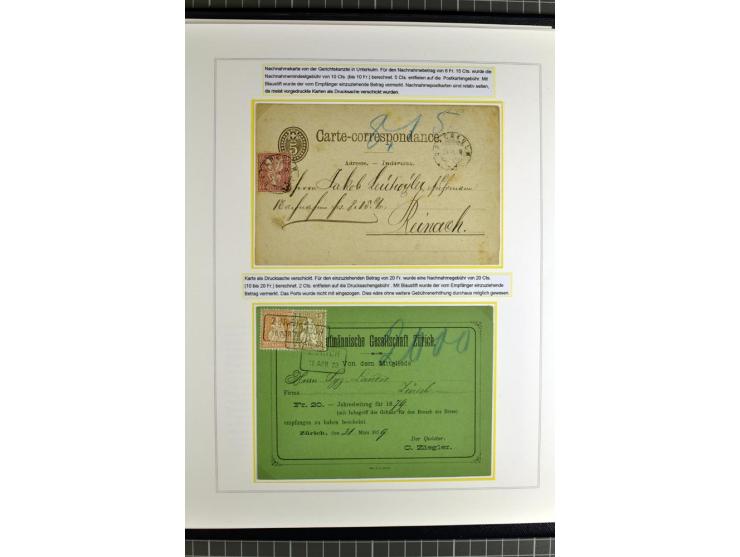 Nachnahmekarte von der Gerichtskanzlei in Unterkulm. Für den Nachnahmebetrag von 8 Fr. 15 Cts. wurde die
Nachnahmemindestgebühr von 10 Cts. (bis 10 Fr.) berechnet. 5 Cts. entfielen auf die Postkartengebühr. Mit
Blaustift wurde der vom Empfänger einzuziehende Betrag vermerkt. Nachnahmepostkarten sind relativ selten,
da meist vorgedruckte Karten als Drucksache verschickt wurden.
8,15
5
Carte-correspondance.
Adresse. — Indirizzo.
Herrn Jakob
Nachnahm frs. 8.
Reinach.
Karte als Drucksache verschickt. Für den einzuziehenden Betrag von 20 Fr. wurde eine Nachnahmegebühr von 20 Cts.
(10 bis 20 Fr.) berechnet. 2 Cts. entfielen auf die Drucksachengebühr. Mit Blaustift wurde der vom Empfänger einzuziehende
Betrag vermerkt. Das Porto wurde nicht mit eingezogen. Dies wäre ohne weitere Gebührenerhöhung durchaus möglich gewesen.
fmännische Gesellschaft Zürich.
2000
ZÜRICH
Von dem Mitgliede
Herrn
Firma Zürich
Fr. 20. — Jahresbeitrag für 1879
(mit Inbegriff der Gebühr für den Besuch der Börse)
empfangen zu haben bescheint
Zürich, den 21. März 1879
Der Quästor:
C. Ziegler.